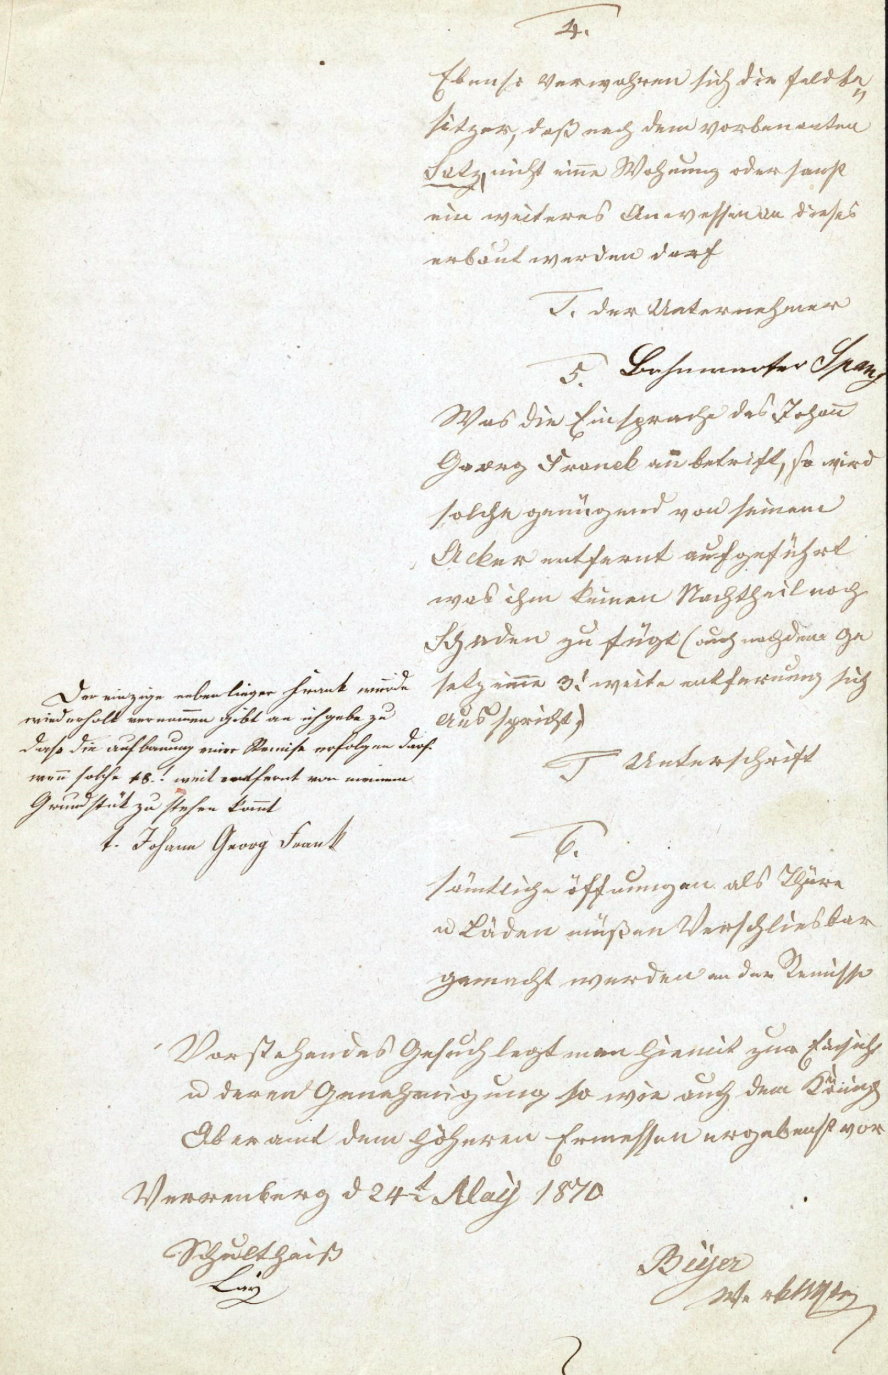 4.
Ebenso verwahren sich die Feldbe„
sitzer, daß nach dem vorbenanten
Satz, nicht eine Wohnung oder sonst
ein weiteres Anwessen an dieses
erbaut werden darf
T. der Unternehmer
Bahnwarter Spang
5.
Was die Einsprache des Johann
Georg Franck anbetrift, so wird
solche genügend von seinem
Acker entfernt aufgeführt
was ihm keinen Nachtheil noch
Schaden zu fügt (auch nach dem Ge
setz eine 3.' weite entfernung sich
ausspricht)
T Unterschrift
Der einzige nebenlieger Frank wurde
wiederholt vernommen gibt an ich gebe zu
dass die aufbauung einer Remise erfolgen darf.
wenn solche 18.' weit entfernt von meinem
Grundstük zu stehen komt
t. Johann Georg Frank
6.
sämtliche öffnungen als Thüre
u Läden müßen Verschliesbar
gemacht werden an der Remisse
Vorstehendes Gesuch legt man hiemit zur Einsicht
u deren Genehmigung so wie auch dem König
Oberamt dem höheren Ermessen ergebenst vor
Verrenberg d 24t May 1870
Schultheiß
Lay
Beyer
Werkmstr